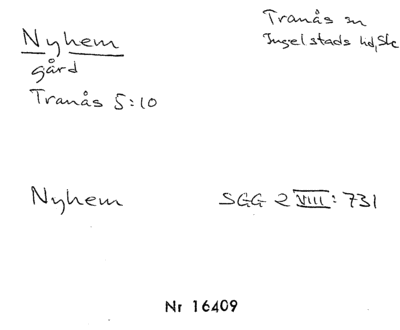 Nyhem
Tranås sn
Ingelstads hd, Sk
gård
Tranås 5:10
Nyhem
SGG 2 VIII: 731
Nr 16409